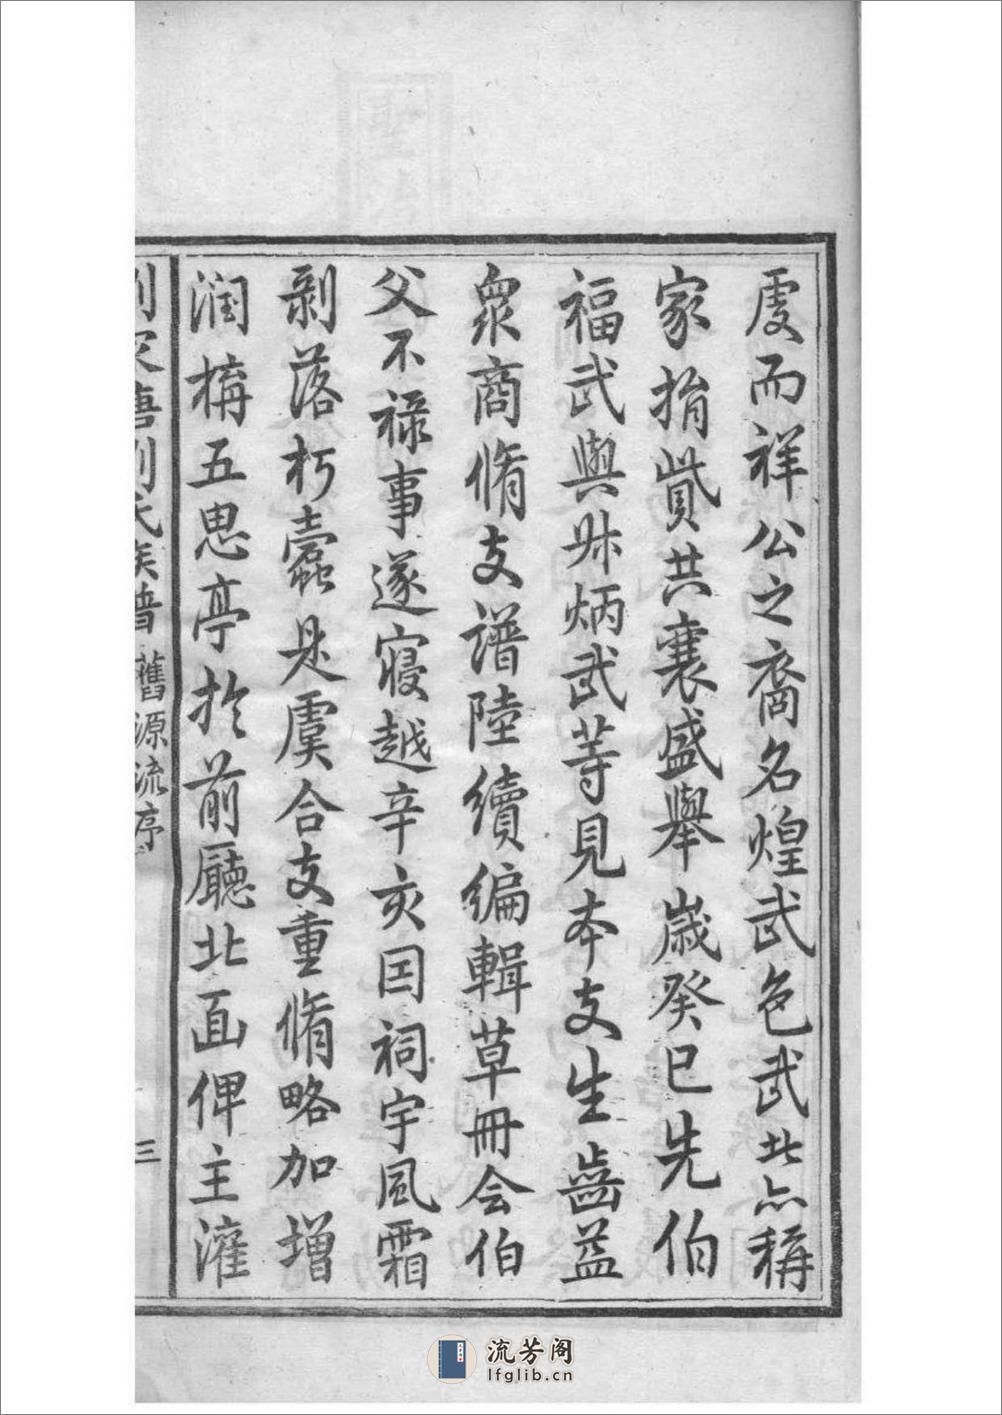 虔而祥公之裔名煌武色武北亦稱
家捐貲共襄盛舉歲癸巳先伯
福武與叔炳武等見本支生齒益
衆商脩支譜陸續編輯草冊会伯
父不祿事遂寢越辛亥因祠宇風霜
剝落朽蠹是虞合支重脩略加增
潤構五思亭於前廳北面俾主灌
劉氏族譜
舊源流序
三
流芳阁
lfglib.cn